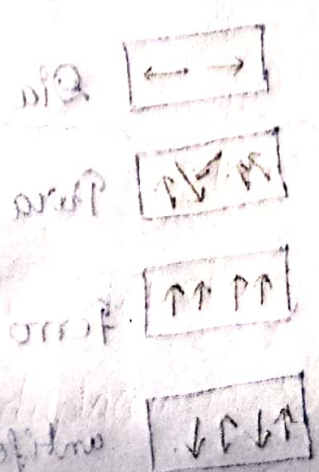 Dia
Para
ferro
antife